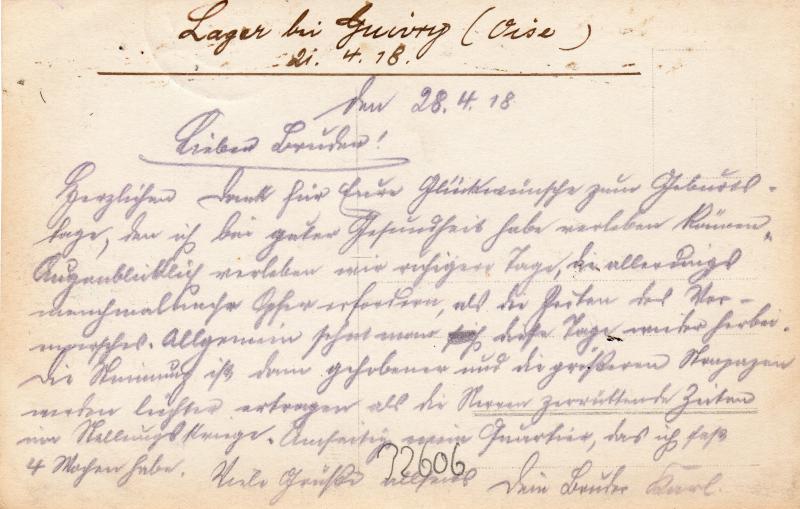 Lager bei Guivry (Oise)
21. 4. 18.
den 28.4.18
Lieber Bruder!
Herzlichen Dank für Eure Glückwünsche zum Geburts-
tage, den ich bei guter Gesundheit habe verleben können.
Augenblicklich verleben wir ruhigere Tage, die allerdings
manchmal mehr Opfer erfordern, als die Zeiten des Vor-
marsches. Allgemein sehnt man sich diese Tage wieder herbei.
Die Stimmung ist dann gehobener und die größeren Strapazen
werden leichter ertragen als die Nerven zerrüttende Zeiten
im Stellungskriege. Umseitig mein Quartier, das ich fast
4 Wochen habe. Viele Grüße allseits Dein Bruder Karl.
32606